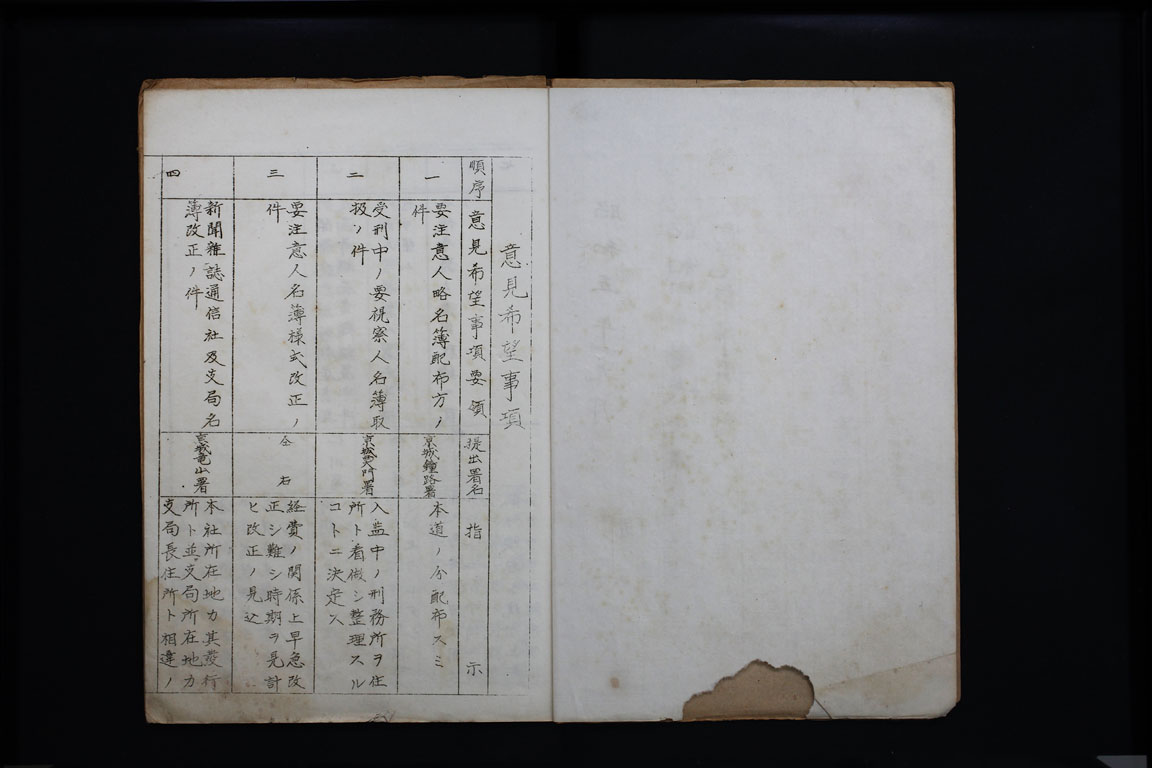 意見希望事項
順序
意見希望事項要領
提出署名
指示
一
要注意人略名簿配布方ノ
件
京城鐘路署
本道ノ分配布スミ
二
受刑中ノ要視察人名簿取
扱ノ件
京城西大門署
入監中ノ刑務所ヲ住
所ト看做シ整理スル
コトニ決定ス
三
要注意人名簿様式改正ノ
件
仝右
経費ノ関係上早急改
正シ難シ時期ヲ見計
ヒ改正ノ見込
四
新聞雑誌通信社及支局名
簿改正ノ件
京城竜山署
本社所在地カ其発行
所ト並支局所在地カ
支局長住所ト相違ノ